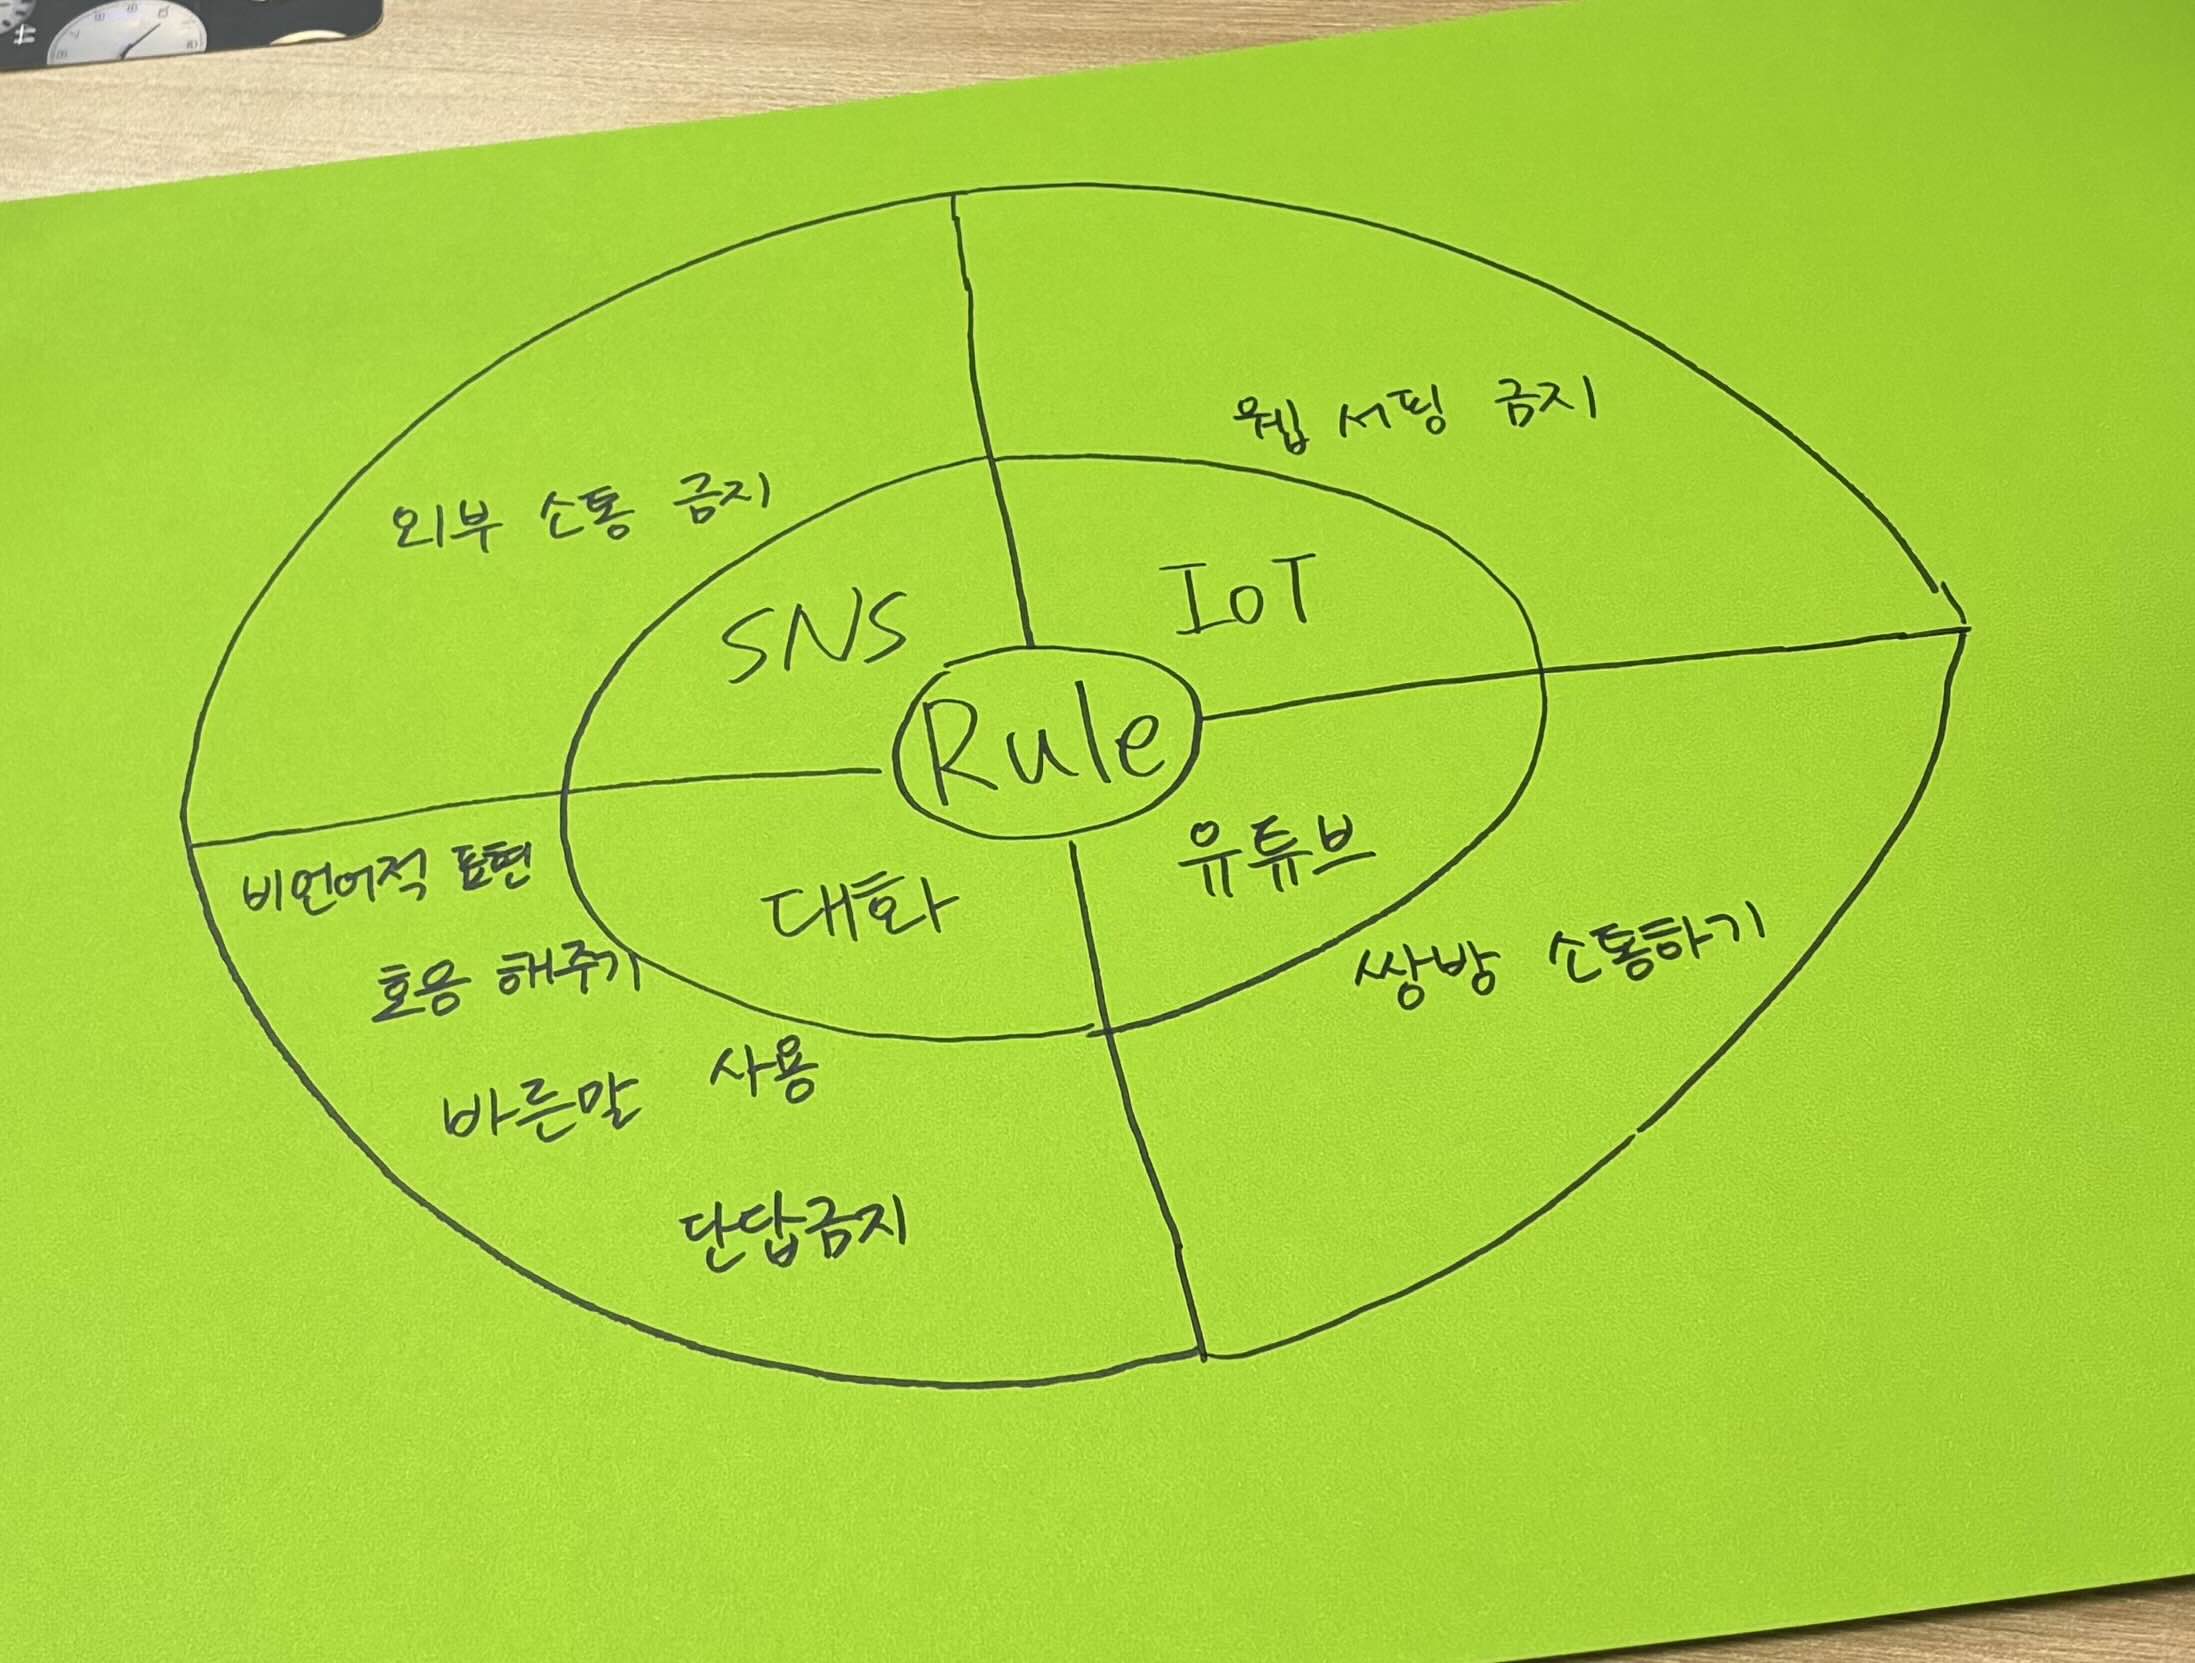 외부 소통 금지
웹 서핑 금지
SNS
IoT
Rule
대화
유튜브
비언어적 표현
호응 해주기
바른말 사용
단답금지
쌍방 소통하기